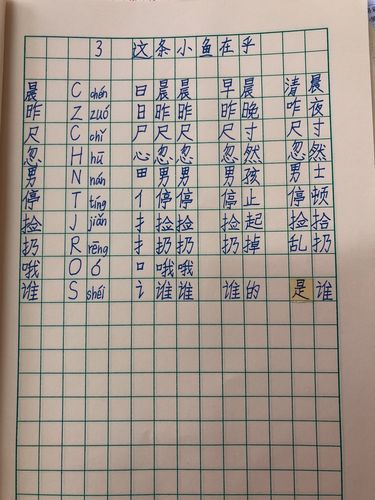 3 这条小鱼在乎
晨 C chén 日晨晨 早晨 清晨
昨 Z zuó 日昨昨 昨晚 昨夜
尺 C chǐ 尸尺尺 尺寸 尺寸
忽 H hū 心忽忽 忽然 忽然
男 N nán 田男男 男孩 男士
停 T tíng 亻停停 停止 停顿
捡 J jiǎn 扌捡捡 捡起 捡拾
扔 R rēng 扌扔扔 扔掉 乱扔
哦 O ó 口哦哦
谁 S shéi 讠谁谁 谁的 是谁